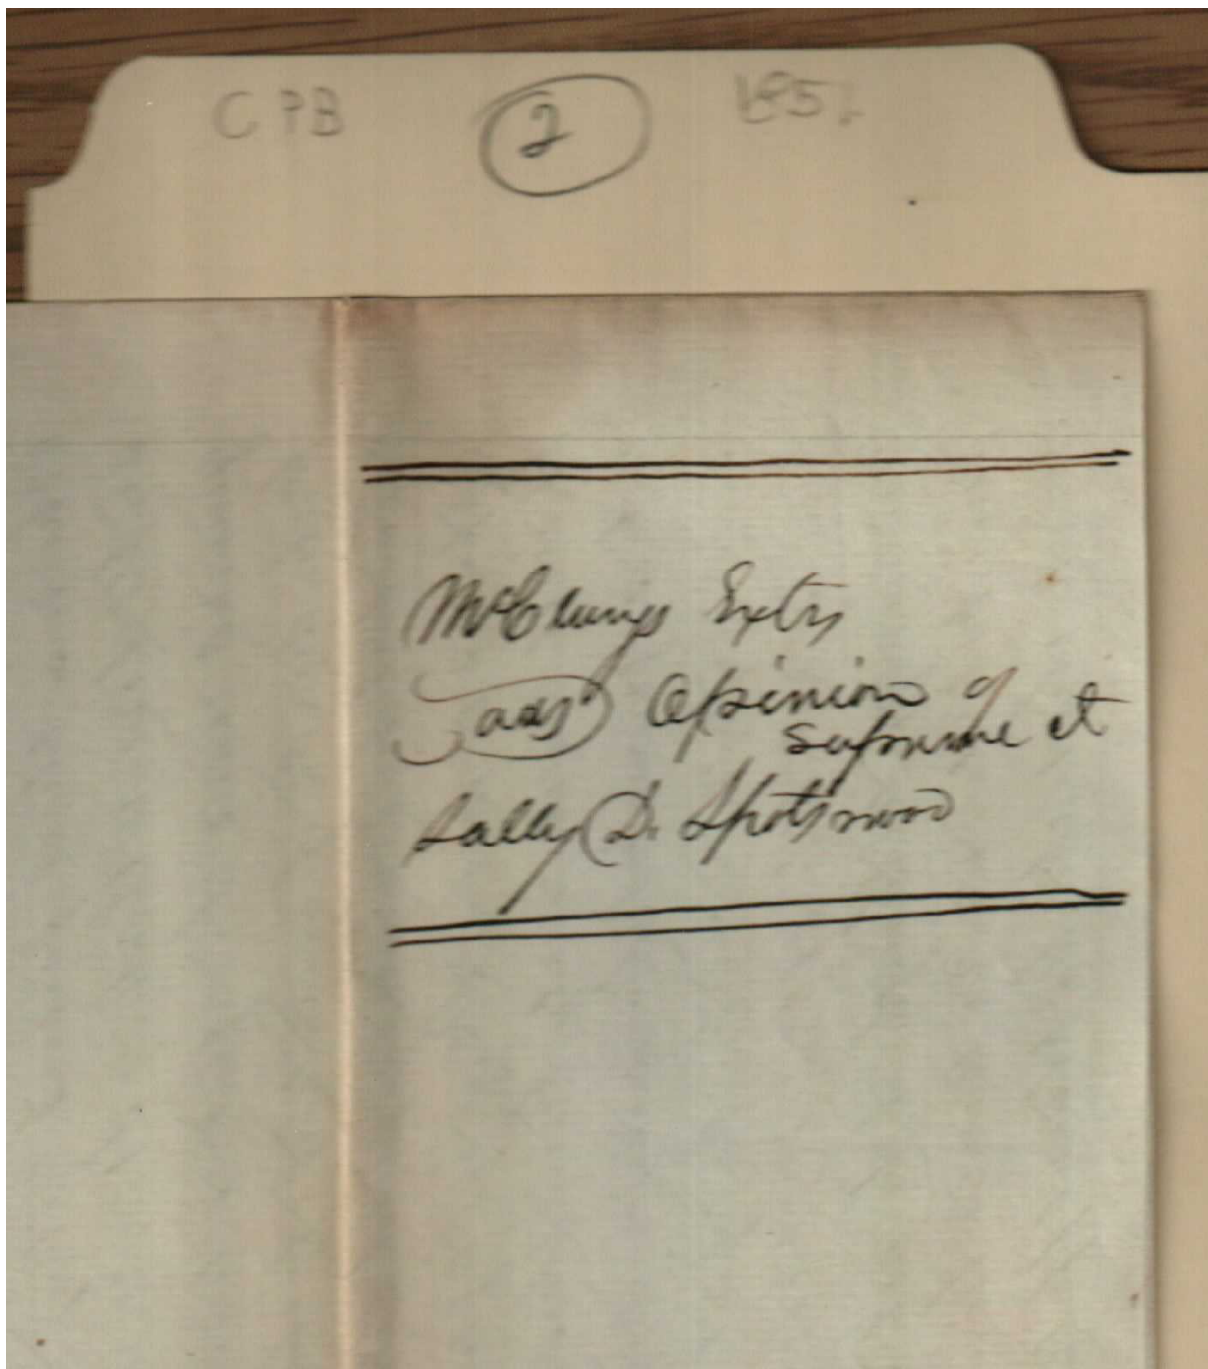 CPB 2 1851
McClungs Extrs
ads Opinion of
Supreme Ct
Sally D. Spotswood